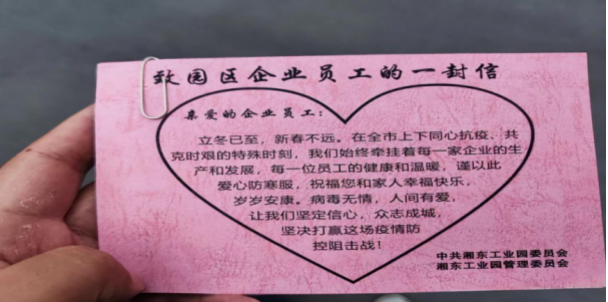 致园区企业员工的一封信
亲爱的企业员工：
立冬已至，新春不远。在全市上下同心抗疫、共
克时艰的特殊时刻，我们始终牵挂着每一家企业的生
产和发展，每一位员工的健康和温暖，谨以此
爱心防寒服，祝福您和家人幸福快乐，
岁岁安康。病毒无情，人间有爱，
让我们坚定信心，众志成城，
坚决打赢这场疫情防
控阻击战！
中共湘东工业园委员会
湘东工业园管理委员会